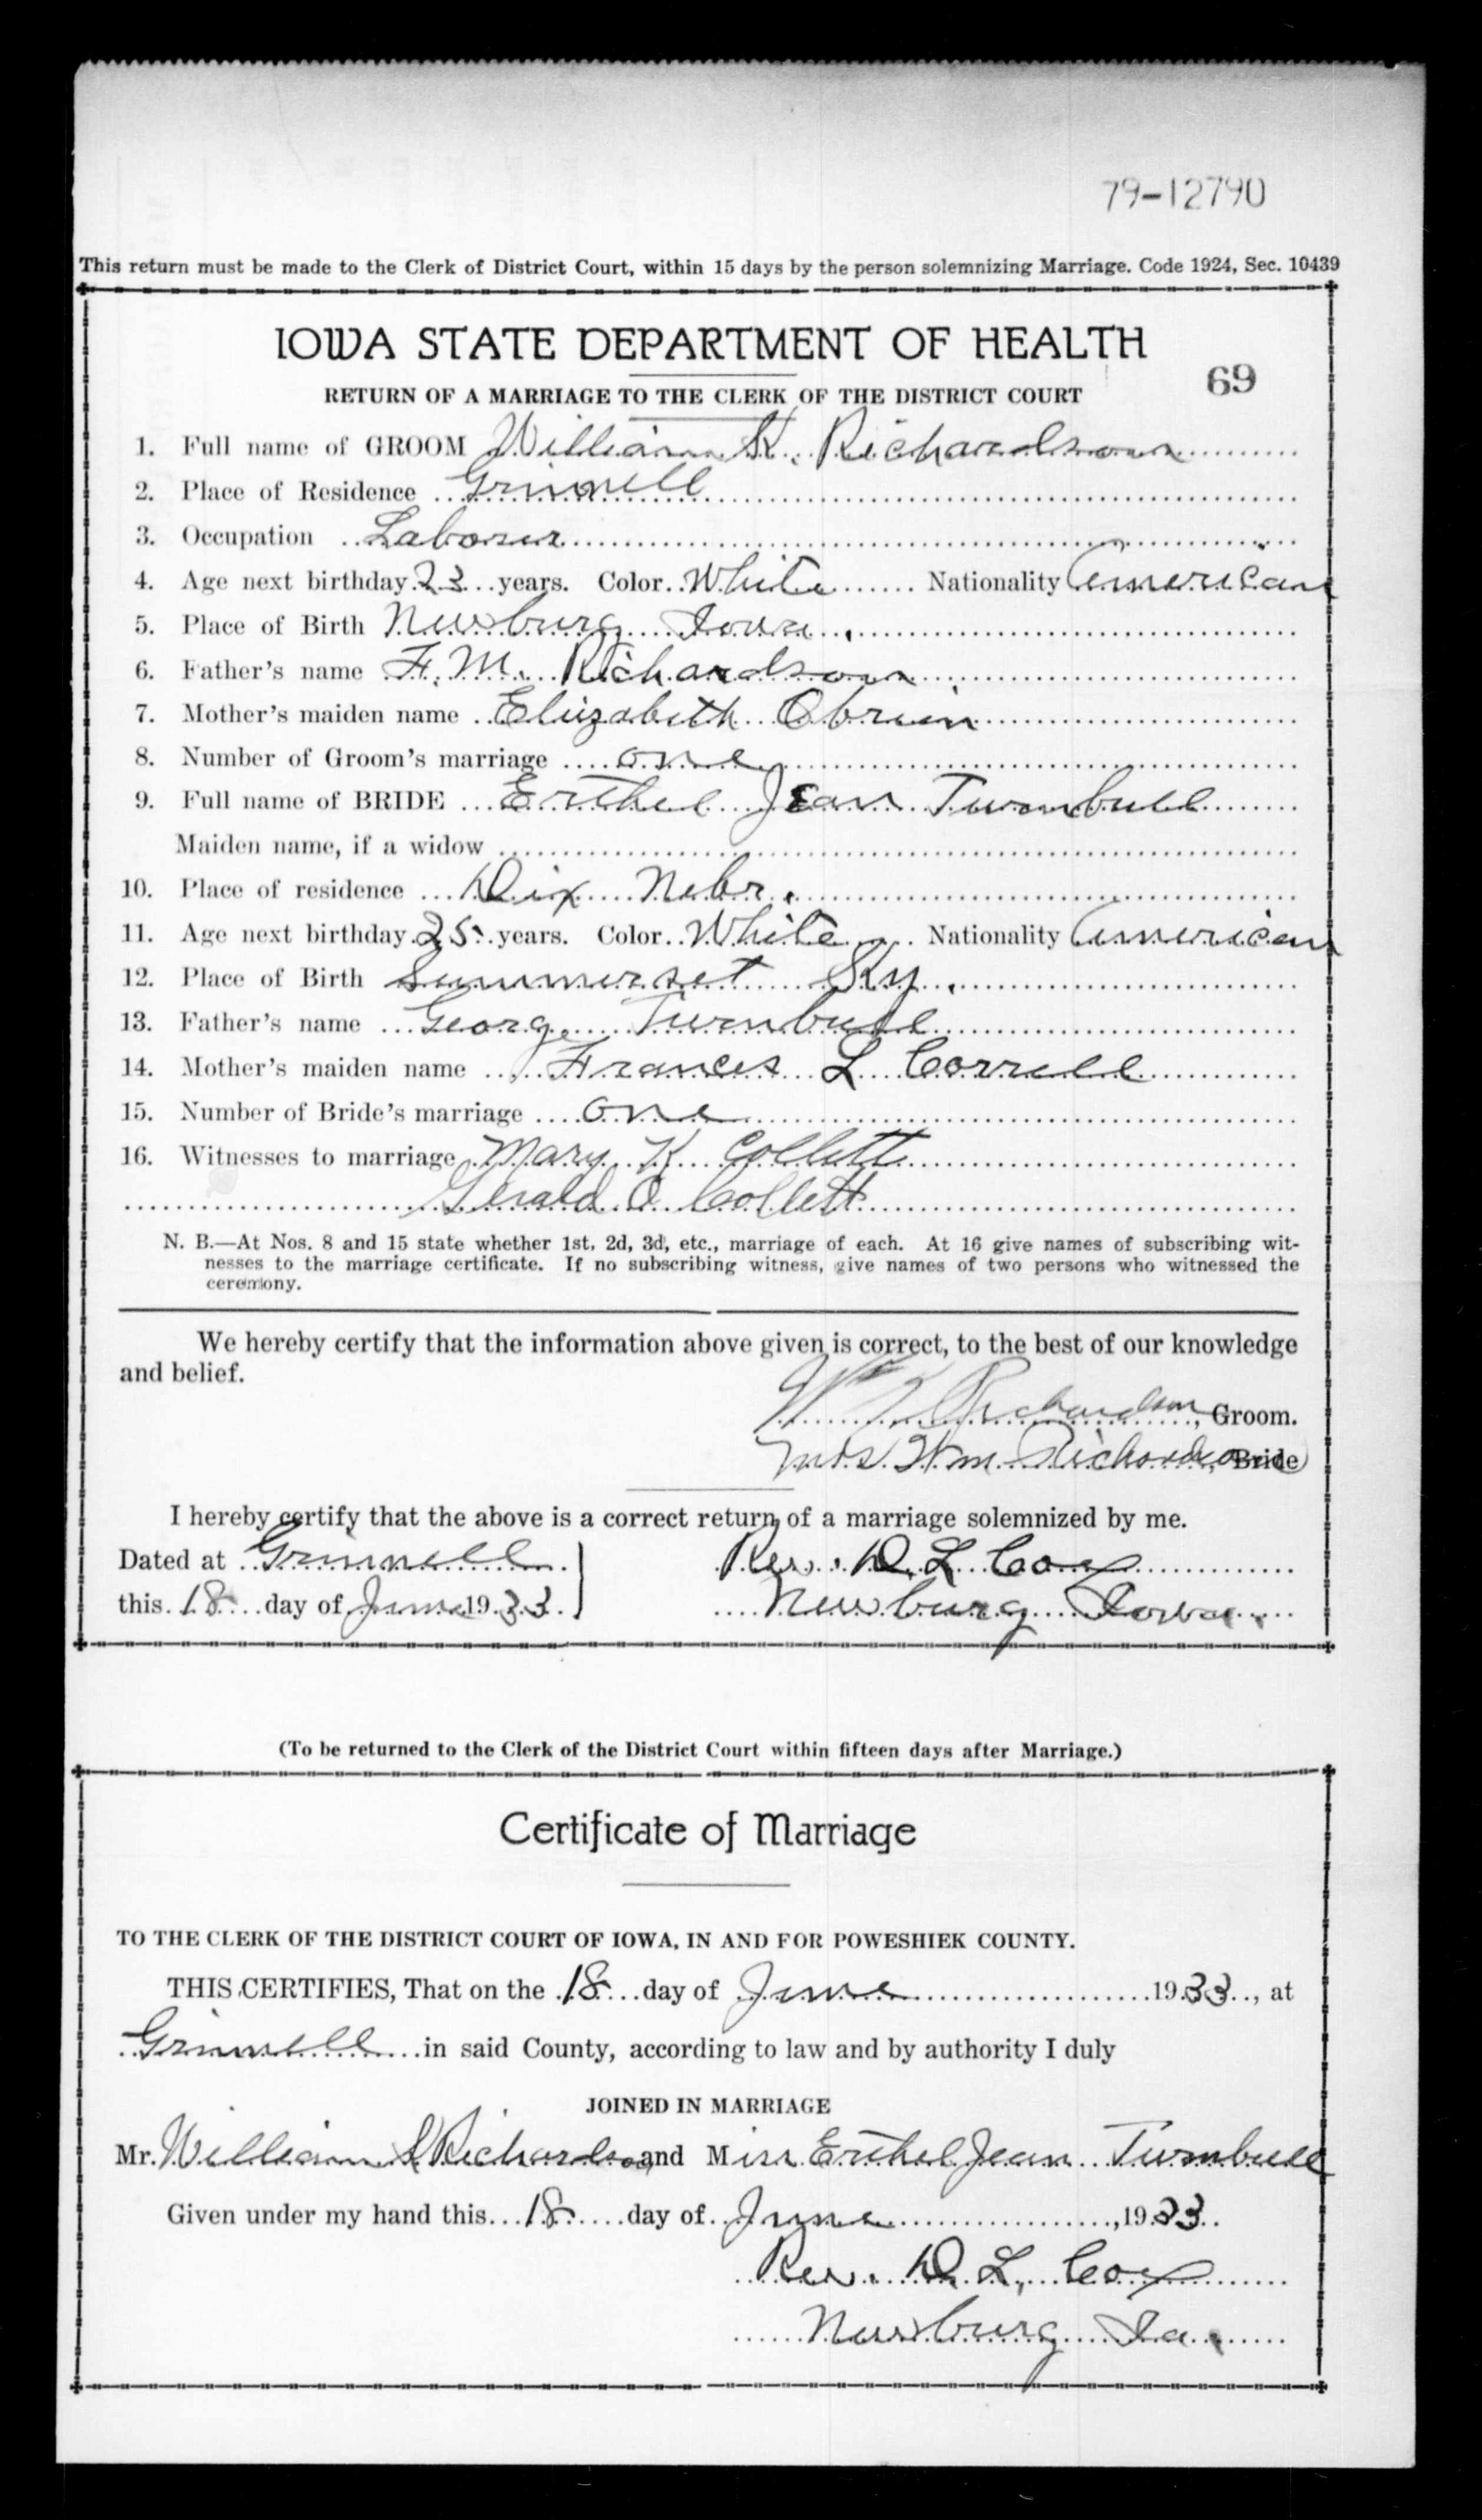 79-12790
This return must be made to the Clerk of District Court, within 15 days by the person solemnizing Marriage. Code 1924, Sec. 10439
IOWA STATE DEPARTMENT OF HEALTH
69
RETURN OF A MARRIAGE TO THE CLERK OF THE DISTRICT COURT
1. Full name of GROOM William K. Richardson
2. Place of Residence Grinnell
3. Occupation Laborer
4. Age next birthday 23 years. Color White Nationality American
5. Place of Birth Newburg Iowa.
6. Father's name F. M. Richardson
7. Mother's maiden name Elizabeth Obrien
8. Number of Groom's marriage one
9. Full name of BRIDE Erthel Jean Turnbull
Maiden name, if a widow
10. Place of residence Dix Nebr.
11. Age next birthday 25 years. Color White Nationality American
12. Place of Birth Summerset Ky.
13. Father's name George Turnbull
14. Mother's maiden name Frances L Correll
15. Number of Bride's marriage one
16. Witnesses to marriage Mary K Collett
Gerald O. Collett
N. B.—At Nos. 8 and 15 state whether 1st, 2d, 3d, etc., marriage of each. At 16 give names of subscribing wit-
nesses to the marriage certificate. If no subscribing witness, give names of two persons who witnessed the
ceremony.
We hereby certify that the information above given is correct, to the best of our knowledge
and belief.
Wm K Richardson, Groom.
Mrs. Wm. Richardson, Bride
I hereby certify that the above is a correct return of a marriage solemnized by me.
Dated at Grinnell Rev. D L Cox
this 18 day of June 1933. Newburg Iowa.
(To be returned to the Clerk of the District Court within fifteen days after Marriage.)
Certificate of Marriage
TO THE CLERK OF THE DISTRICT COURT OF IOWA, IN AND FOR POWESHIEK COUNTY.
THIS CERTIFIES, That on the 18 day of June 1933, at
Grinnell in said County, according to law and by authority I duly
JOINED IN MARRIAGE
Mr. William K Richardson and Miss Erthel Jean Turnbull
Given under my hand this 18 day of June, 1933
Rev. D. L. Cox
Newburg Ia.